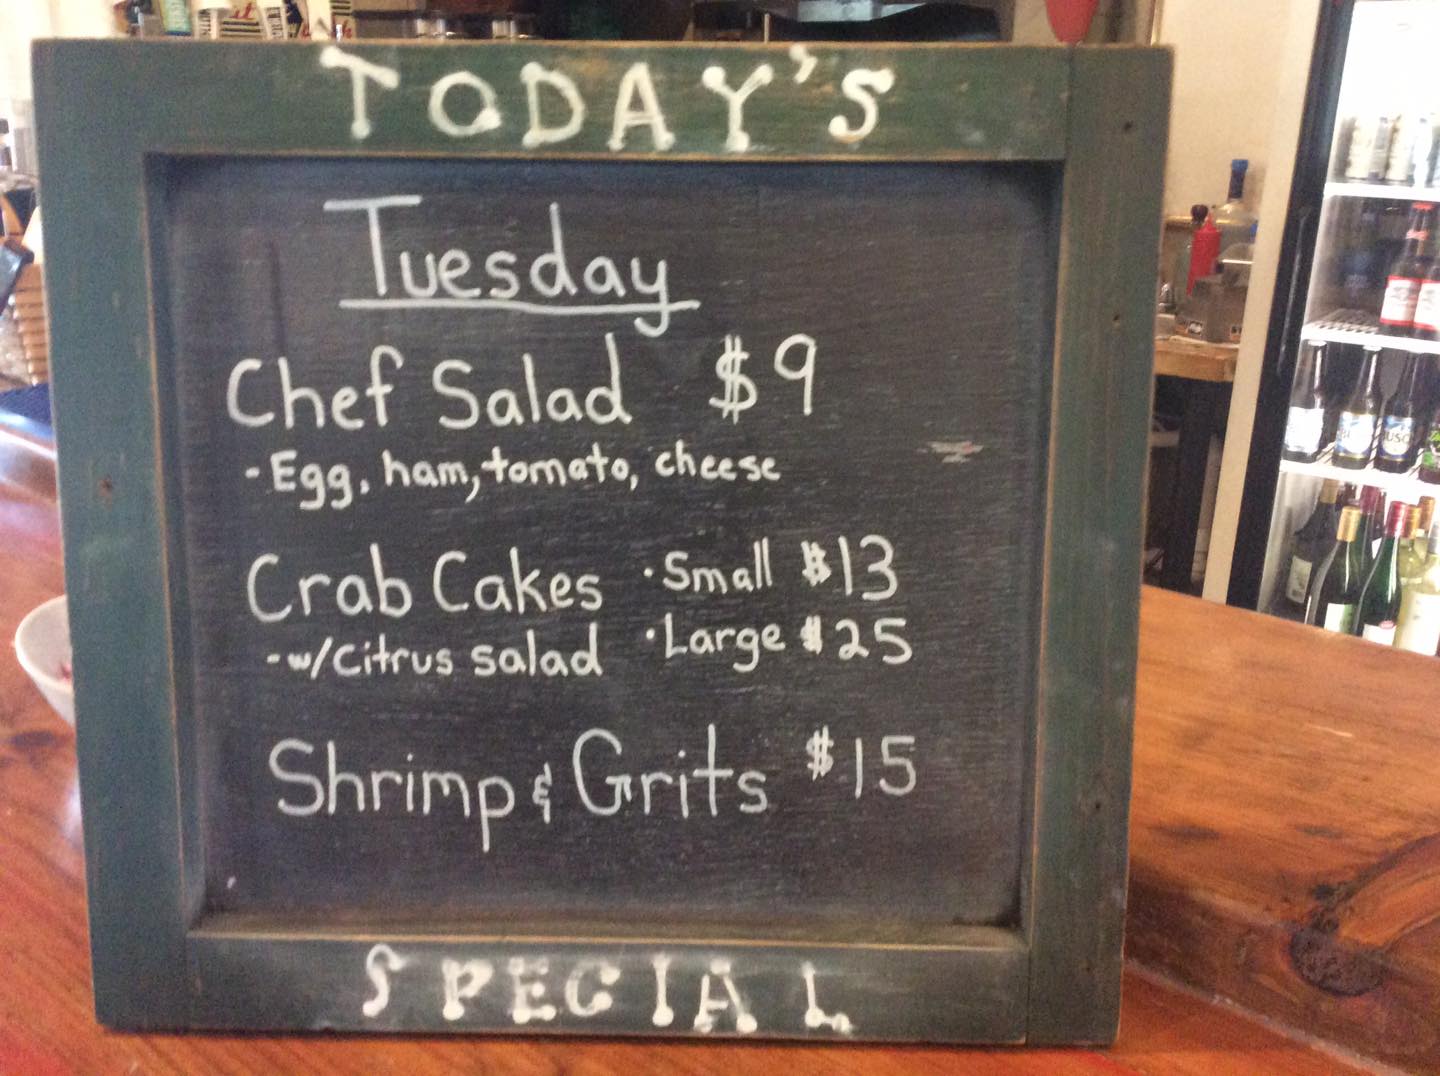 TODAY'S
Tuesday
Chef Salad $9
- Egg, ham, tomato, cheese
Crab Cakes · Small $13
- w/ citrus salad · Large $25
Shrimp & Grits $15
SPECIAL